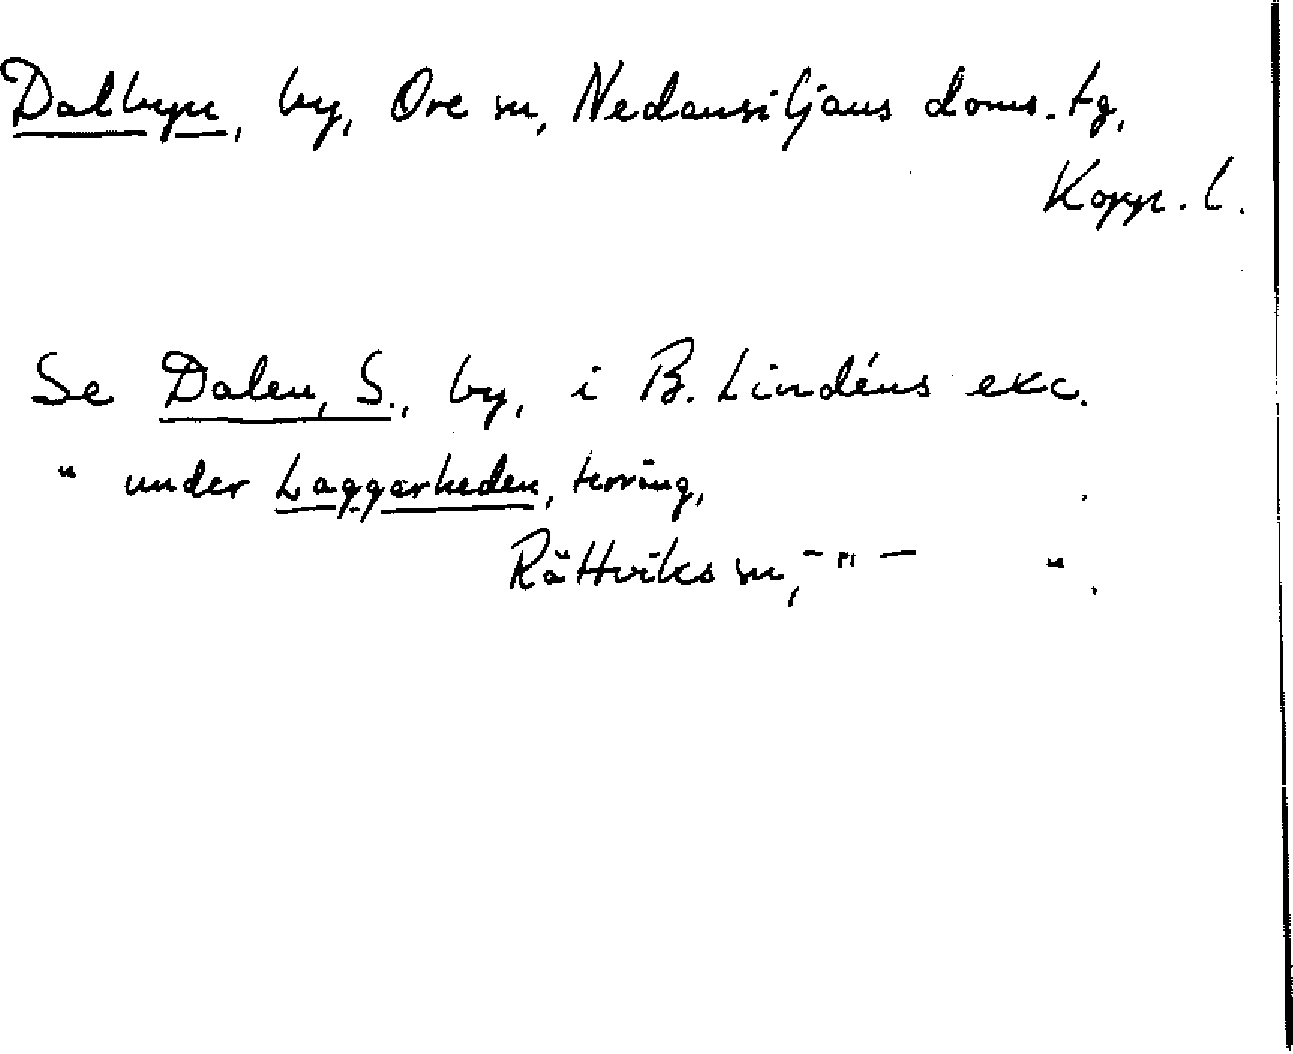 Dalbyn, by, Ore sn, Nedansiljans doms. tg,
Kopp. l.
Se Dalen, S., by, i B. Lindéns exc.
" under Laggarheden, terräng,
Rättviks sn, – " – ".